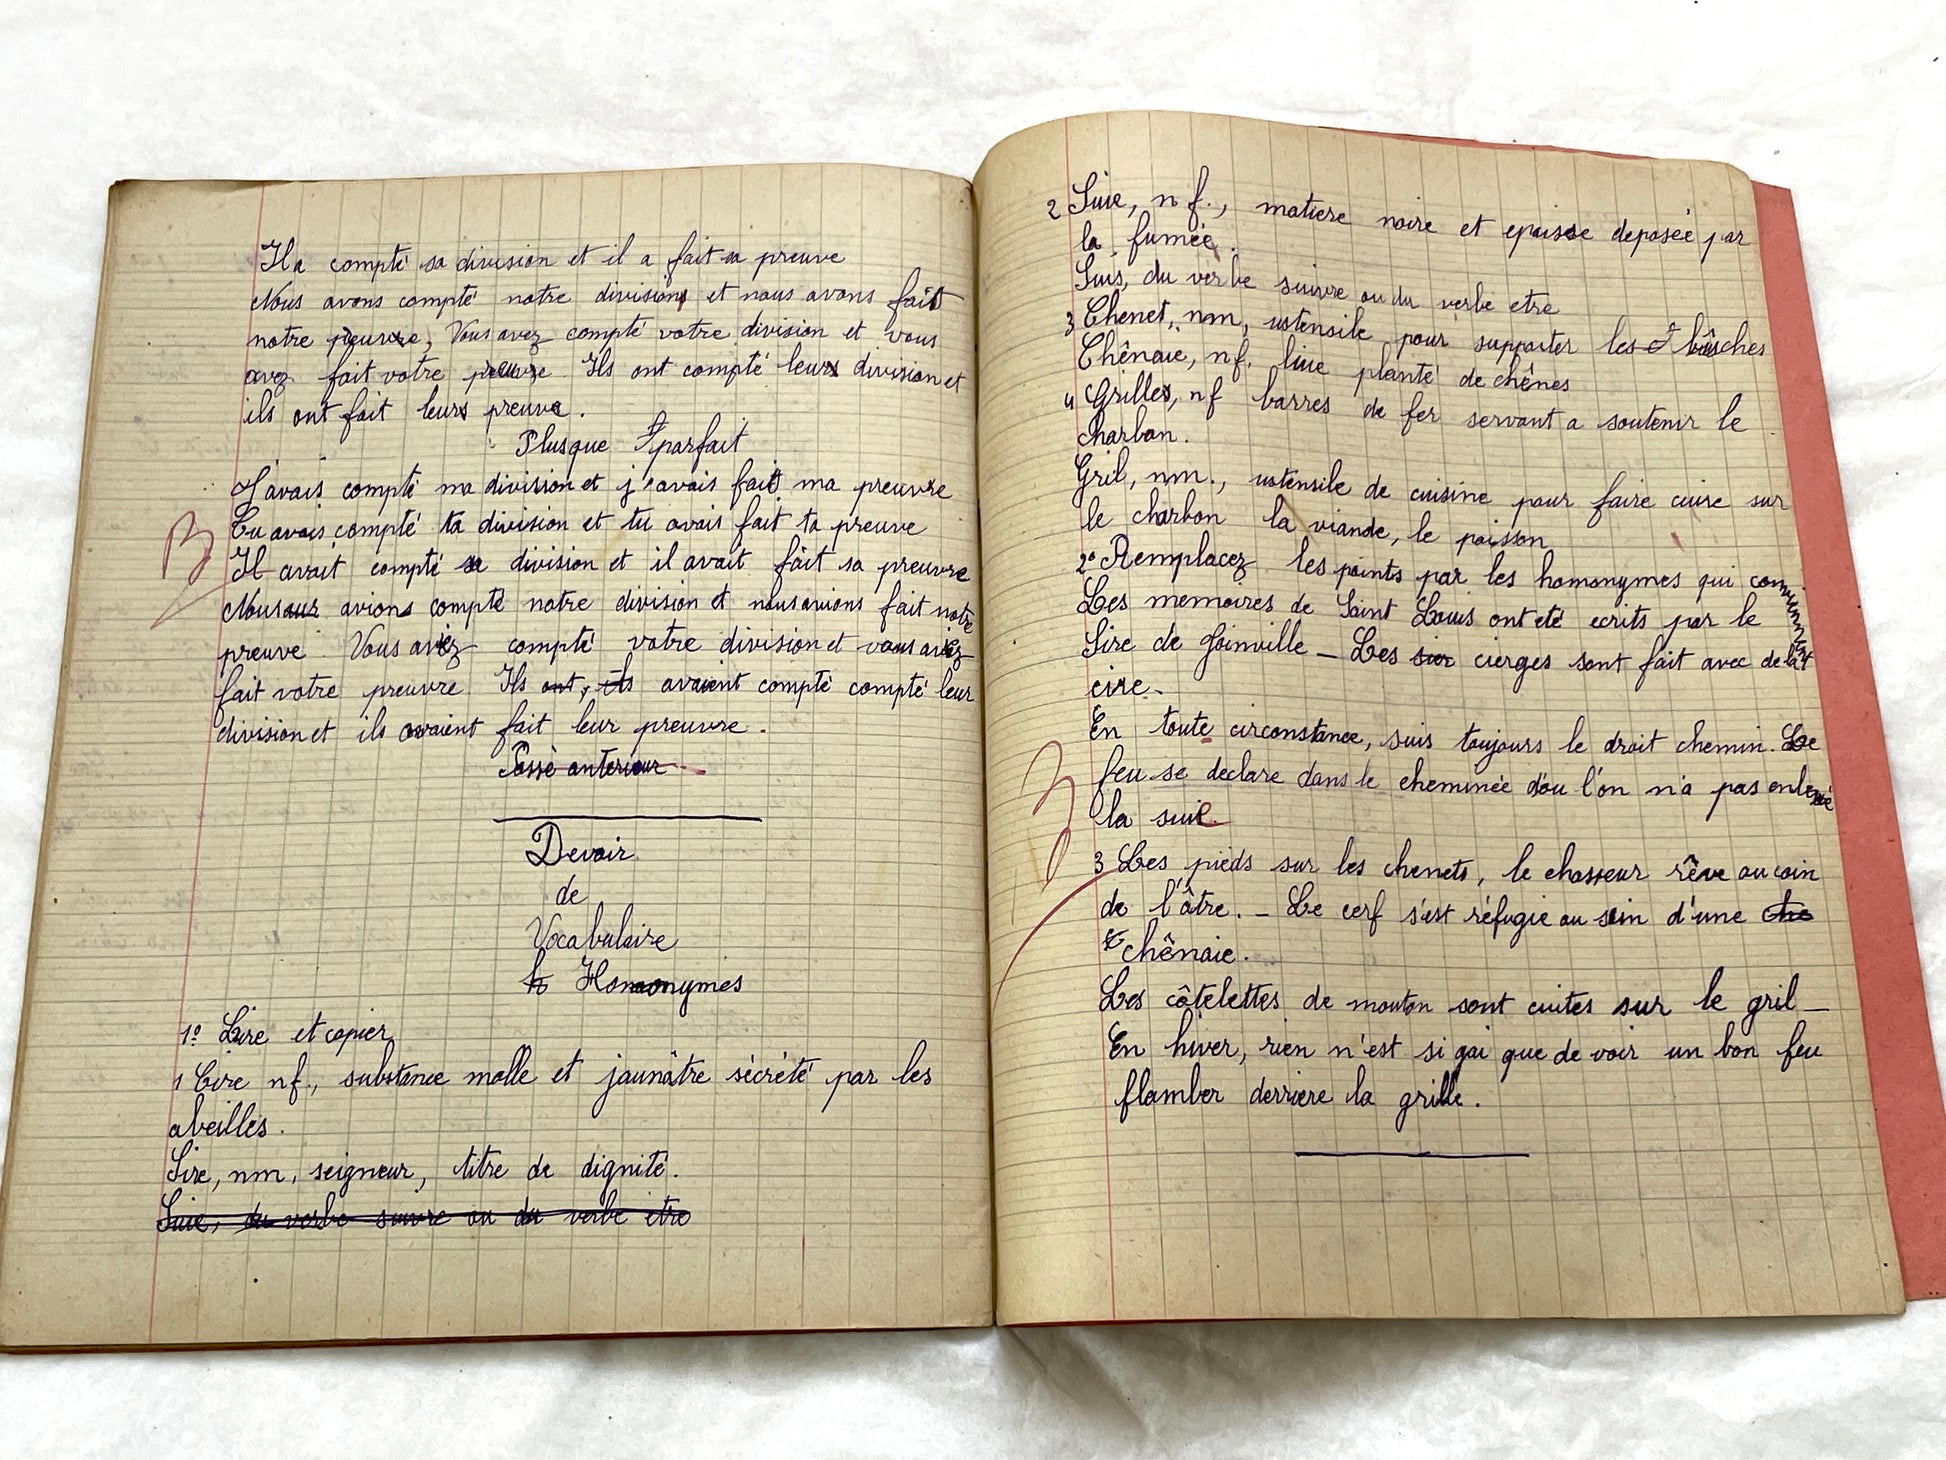 Il a compté sa division et il a fait sa preuve
Nous avons compté notre division et nous avons fait
notre preuvre, Vous avez compté votre division et vous
avez fait votre preuvre. Ils ont compté leurs division et
ils ont fait leurs preuve.
Plusque parfait
J'avais compté ma division et j'avais fait ma preuvre
Tu avais compté ta division et tu avais fait ta preuve
Il avait compté sa division et il avait fait sa preuvre
Nous avions compté notre division et nous avions fait notre
preuve. Vous aviez compté votre division et vous aviez
fait votre preuvre Ils ont, ils avaient compté compté leur
division et ils avaient fait leur preuvre.
Passé anterieur
Devoir
de
Vocabulaire
h Homonymes
1º Lire et copier
1 Cire nf., substance molle et jaunâtre sécrété par les
abeilles.
Sire, nm, seigneur, titre de dignité.
Suie, du verbe suivre ou du verbe etre
2 Suie, n f., matiere noire et epaisse deposée par
la fumée.
Suis, du verbe suivre ou du verbe etre
3 Chenet, nm, ustensile pour supporter les bûches
Chênaie, nf. lieu planté de chênes
4 Grilles, nf barres de fer servant a soutenir le
charbon.
Gril, nm., ustensile de cuisine pour faire cuire sur
le charbon la viande, le poisson
2º Remplacez les points par les homonymes qui
Les memoires de Saint Louis ont eté ecrits par le
Sire de Joinville – Les cierges sont fait avec de la
cire.
En toute circonstance, suis toujours le droit chemin. Le
feu se declare dans le cheminée d'ou l'on n'a pas enlevé
la suie.
3 Les pieds sur les chenets, le chasseur rêve au coin
de l'âtre. – Le cerf s'est réfugie au sein d'une che
chênaie.
Les côtelettes de mouton sont cuites sur le gril –
En hiver, rien n'est si gai que de voir un bon feu
flamber derriere la grille.